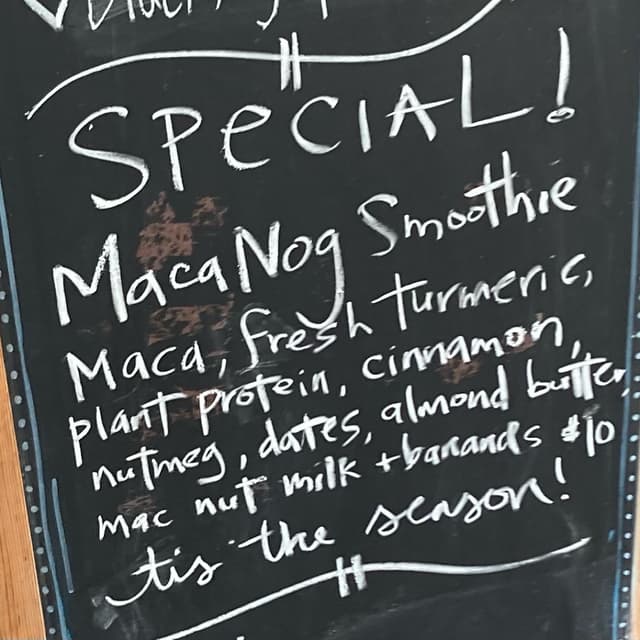 SPECIAL!
Maca Nog Smoothie
Maca, fresh turmeric,
plant protein, cinnamon,
nutmeg, dates, almond butter,
mac nut milk + bananas $10
tis the season!